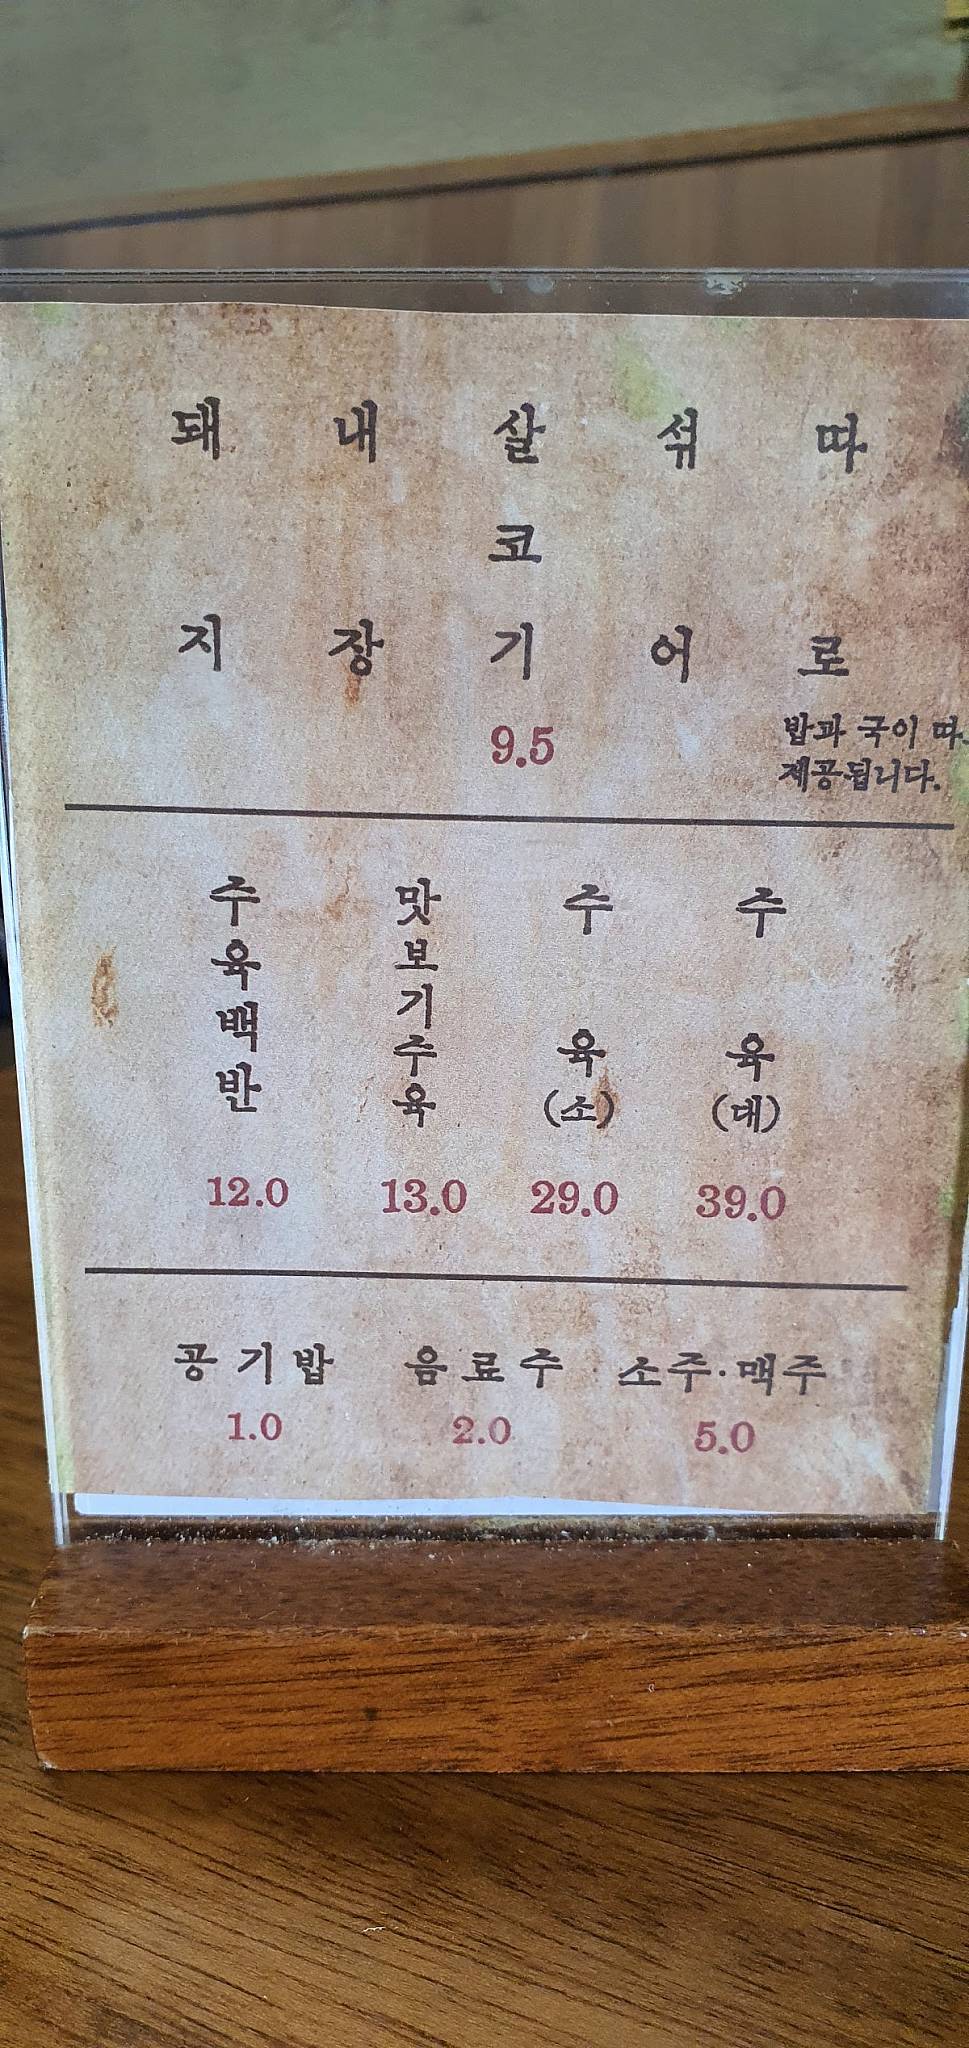 돼지
내장
살코기
섞어
따로
9.5
밥과 국이 따
제공됩니다.
주육백반
맛보기주육
주육(소)
주육(대)
12.0
13.0
29.0
39.0
공기밥
음료수
소주·맥주
1.0
2.0
5.0